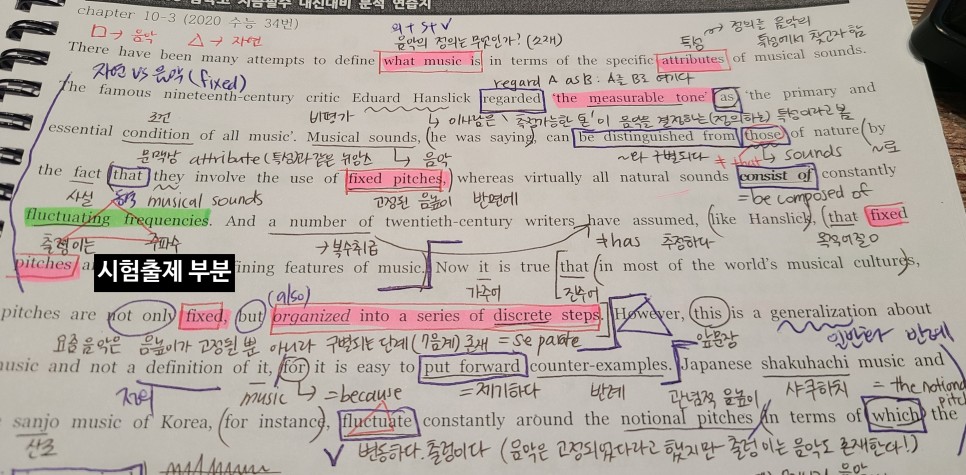 chapter 10-3 (2020 수능 34번)
□ → 음악 △ → 자연
의 + S + V
음악의 정의는 무엇인가? (소재)
특성 → 정의를 음악의 특성에서 찾고자 함
There have been many attempts to define what music is in terms of the specific attributes of musical sounds.
자연 vs 음악 (fixed)
regard A as B : A를 B로 여기다
The famous nineteenth-century critic Eduard Hanslick regarded 'the measurable tone' as 'the primary and
조건
비평가
essential condition of all music'. Musical sounds, (he was saying), can be distinguished from those of nature (by
문맥상 attribute (특성과 같은 뉘앙스
음악
~와 구별되다
sounds
~로
the fact that they involve the use of fixed pitches, whereas virtually all natural sounds consist of constantly
사실 동격 musical sounds
고정된 음높이 반면에
= be composed of
fluctuating frequencies. And a number of twentieth-century writers have assumed, (like Hanslick), (that fixed
출렁이는 주파수
→ 복수취급
≠has 추정하다
pitches
시험출제 부분
fining features of music. Now it is true that (in most of the world's musical cultures,
가주어
진주어
(also)
pitches are not only fixed, but organized into a series of discrete steps. However, (this) is a generalization about
요즘 음악은 음높이가 고정된 뿐 아니라 구별되는 단계 (7음계) 로 = separate
앞문장
일반화 반례
music and not a definition of it, for it is easy to put forward counter-examples. Japanese shakuhachi music and
music → = because
= 제기하다
반례
관념적 음높이
샤쿠하치
= the notional
sanjo music of Korea, (for instance), fluctuate constantly around the notional pitches in terms of which the
산조
변동하다. 출렁이다 (음악은 고정되었다라고 했지만 출렁이는 음악도 존재한다!)